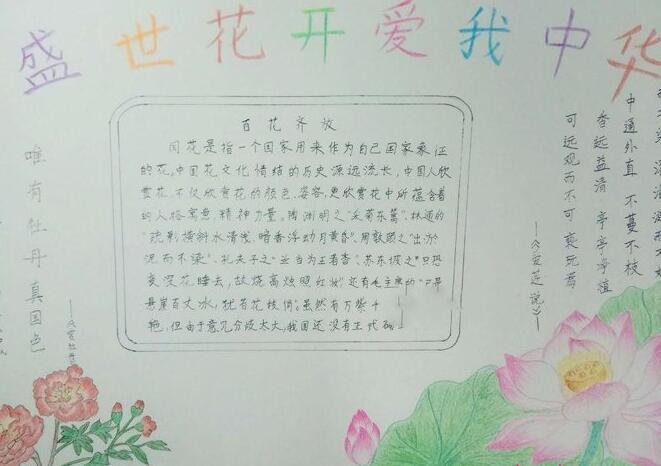 盛世花开爱我中华
百花齐放
国花是指一个国家用来作为自己国家象征
的花,中国花文化情结的历史源远流长,中国人欣
赏花,不仅欣赏花的颜色、姿容,更欣赏花中所蕴含着
的人格寓意,精神力量。陶渊明之"采菊东篱"、林逋的
"疏影横斜水清浅,暗香浮动月黄昏"、周敦颐之"出淤
泥而不染"、孔夫子之"兰当为王者香"、苏东坡之"只恐
夜深花睡去,故烧高烛照红妆",还有毛主席的"已是
悬崖百丈冰,犹有花枝俏。虽然有万紫千
艳,但由于意见分歧太大,我国还没有正式
唯有牡丹真国色
中通外直 不蔓不枝
香远益清 亭亭净植
可远观而不可亵玩焉
——《爱莲说》